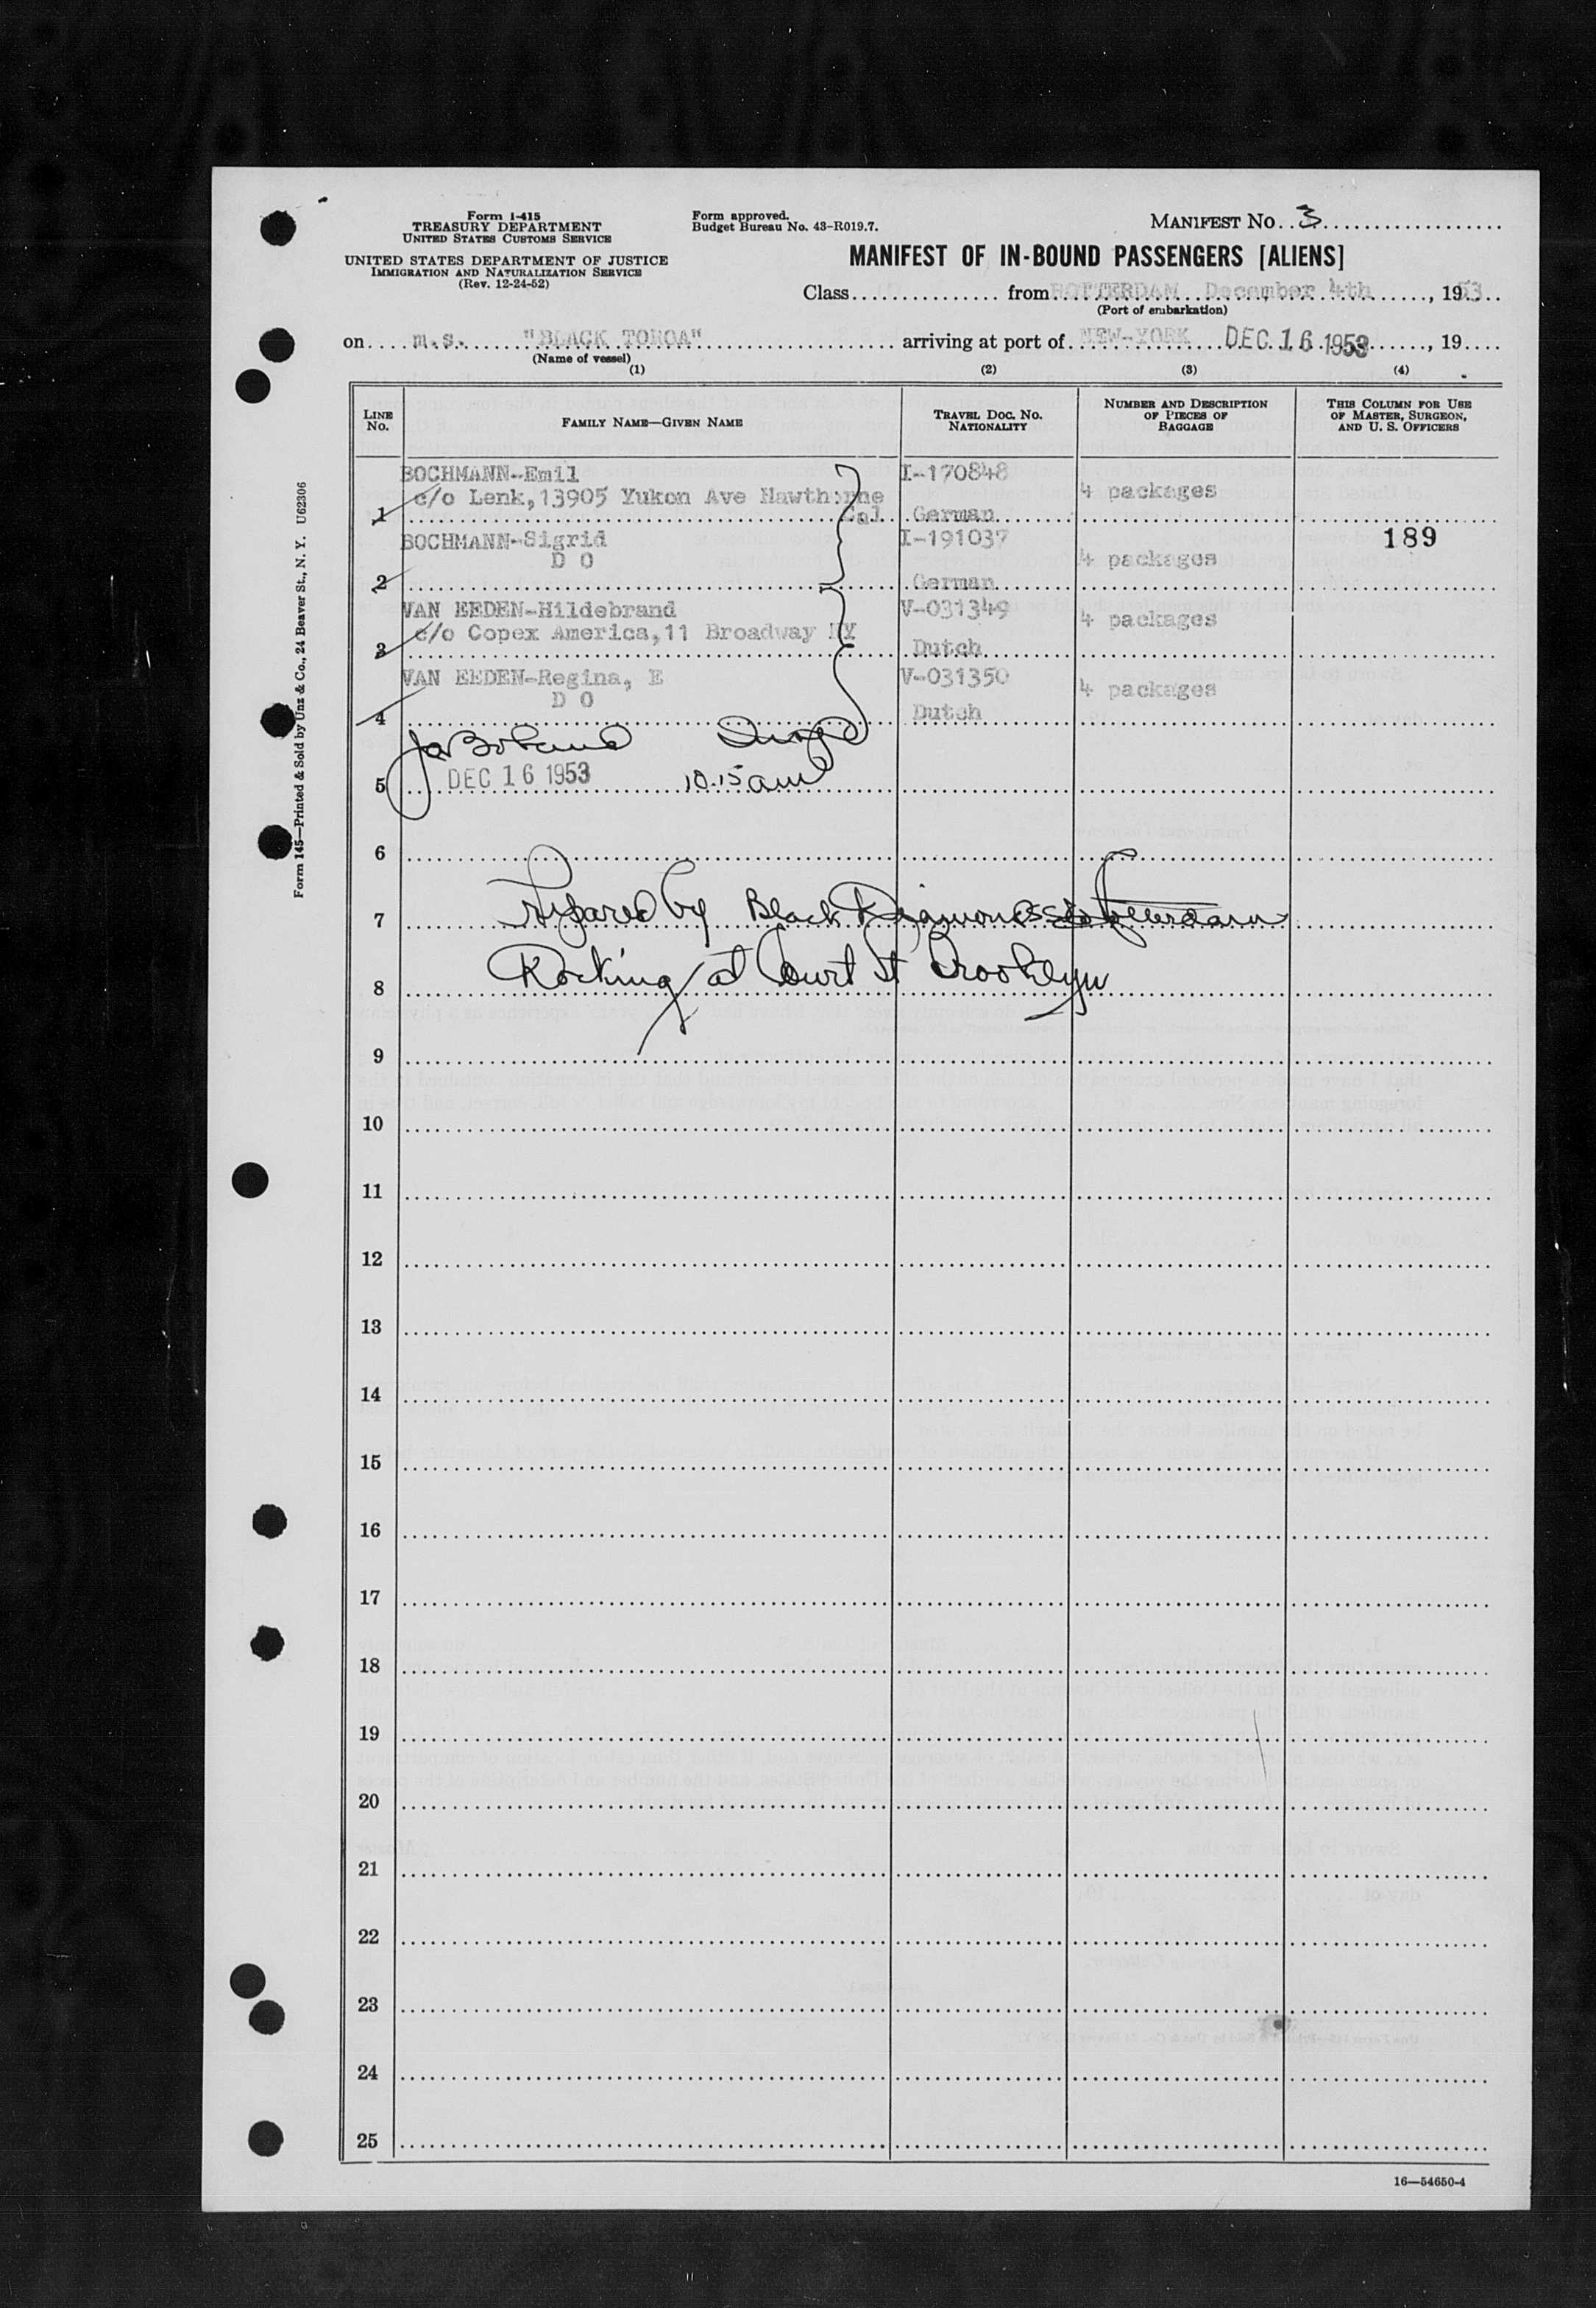 Form I-415
TREASURY DEPARTMENT
UNITED STATES CUSTOMS SERVICE
UNITED STATES DEPARTMENT OF JUSTICE
IMMIGRATION AND NATURALIZATION SERVICE
(Rev. 12-24-52)
Form approved.
Budget Bureau No. 43-R019.7.
MANIFEST NO. 3
MANIFEST OF IN-BOUND PASSENGERS [ALIENS]
Class from ROTTERDAM December 4th, 1953
(Port of embarkation)
on m.s. "BLACK TORQA" arriving at port of NEW-YORK DEC 16 1953, 19
(Name of vessel)
(1) (2) (3) (4)
LINE NO. FAMILY NAME—GIVEN NAME TRAVEL DOC. NO. NATIONALITY NUMBER AND DESCRIPTION OF PIECES OF BAGGAGE THIS COLUMN FOR USE OF MASTER, SURGEON, AND U. S. OFFICERS
BOCHMANN-Emil I-170848
c/o Lenk, 13905 Yukon Ave Hawthorne 4 packages
1 Cal German
BOCHMANN-Sigrid I-191037 189
D O 4 packages
2 German
VAN EEDEN-Hildebrand V-031349
c/o Copex America, 11 Broadway NY 4 packages
3 Dutch
VAN EEDEN-Regina, E V-031350
D O 4 packages
4 Dutch
DEC 16 1953 10.15 am
5
6
7 Prepared by Black Diamond SS Rotterdam
8 Docking at Court St Brooklyn
9
10
11
12
13
14
15
16
17
18
19
20
21
22
23
24
25
16—54650-4
Form 145—Printed & Sold by Unz & Co., 24 Beaver St., N. Y. U62306